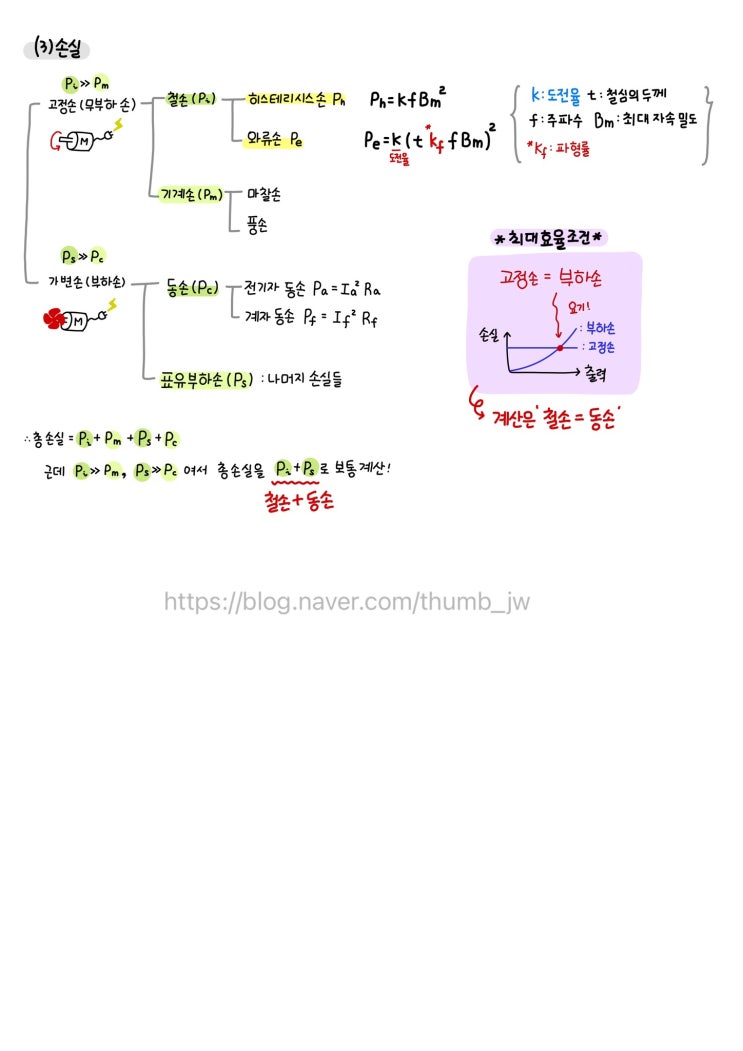 (3) 손실
Pi ≫ Pm
고정손 (무부하 손)
철손 (Pi)
히스테리시스손 Ph
Ph = kfBm²
와류손 Pe
Pe = k (t *kf f Bm)²
도전율
k : 도전율 t : 철심의 두께
f : 주파수 Bm : 최대 자속 밀도
*Kf : 파형률
M
기계손 (Pm)
마찰손
풍손
Ps ≫ Pc
가변손 (부하손)
M
동손 (Pc)
전기자 동손 Pa = Ia² Ra
계자 동손 Pf = If² Rf
표유부하손 (Ps) : 나머지 손실들
*최대효율조건*
고정손 = 부하손
요기!
손실
: 부하손
: 고정손
출력
계산은 '철손 = 동손'
∴ 총손실 = Pi + Pm + Ps + Pc
근데 Pi ≫ Pm, Ps ≫ Pc 여서 총손실을 Pi + Ps 로 보통계산!
철손 + 동손
https://blog.naver.com/thumb_jw